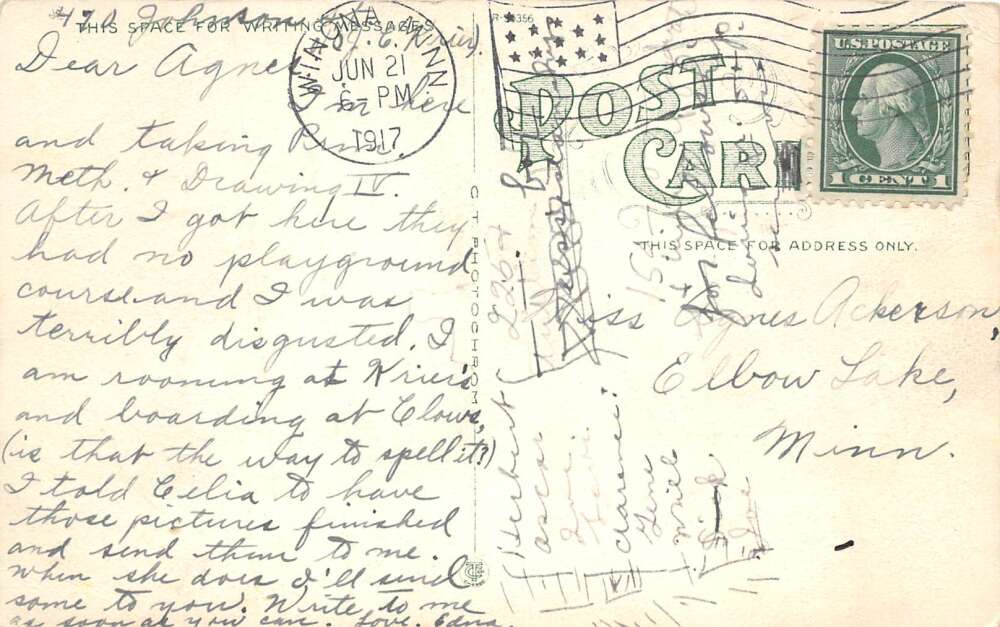 470 Johnson
THIS SPACE FOR WRITING MESSAGES
(J. E. Krier)
Dear Agnes
I'm here
and taking Prim.
Meth. & Drawing IV.
After I got here they
had no playground
course and I was
terribly disgusted. I
am rooming at Krier's
and boarding at Clows,
(is that the way to spell it?)
I told Celia to have
those pictures finished
and send them to me.
When she does I'll send
some to you. Write to me
as soon as you can. Love, Edna.
WINONA
MINN
JUN 21
6 PM
1917
CT PHOTOCHROM
POST
CARD
U.S. POSTAGE
1 CENT 1
THIS SPACE FOR ADDRESS ONLY.
Miss Agnes Ackerson,
Elbow Lake,
Minn.
Herbert
Oscar
Clarence
Gene
Will